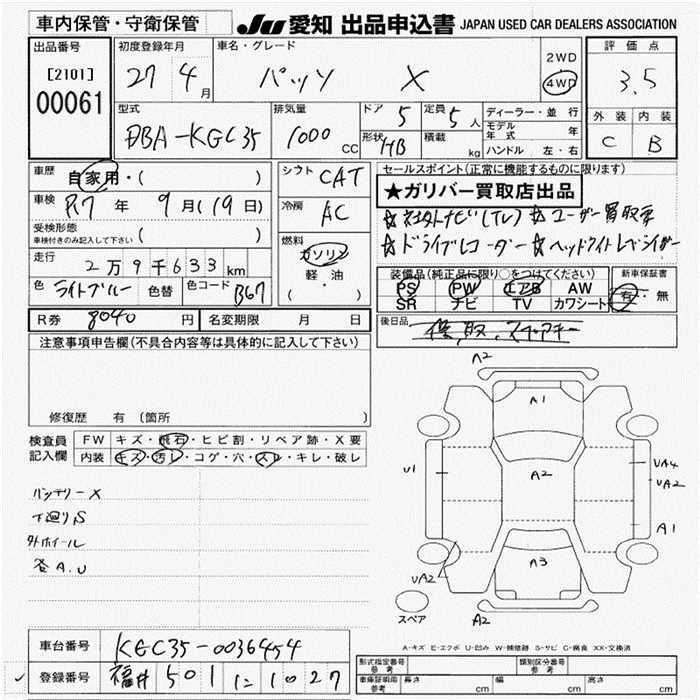 車内保管・守衛保管
JU 愛知 出品申込書 JAPAN USED CAR DEALERS ASSOCIATION
出品番号
[2101]
00061
初度登録年月
27 4月
車名・グレード
パッソ X
2WD
4WD
評価点
3.5
外装 内装
C B
型式
DBA-KGC35
排気量
1000 CC
ドア 5
定員 5人
形状 HB
積載 kg
ディーラー・並行
モデル年式 年
ハンドル 左・右
車歴 自家用・( )
車検 R7年 9月(19日)
受検形態
車検付きのみ記入して下さい ( )
走行 2万9千633km
色 ライトブルー 色替 色コード B67
シフト CAT
冷房 AC
燃料
ガソリン
軽油
( ・ )
セールスポイント(正常に機能するものに限ります)
★ガリバー買取店出品
☆社外ナビ(TV) ☆ユーザー買取車
☆ドライブレコーダー ☆ヘッドライトレベライザー
装備品(純正品に限り○をつけてください)
PS PW エアB AW
SR ナビ TV カワシート
新車保証書
有・無
R券 8040円 名変期限 月 日
後日品 保,取,スペアキー
注意事項申告欄(不具合内容等は具体的に記入して下さい)
修復歴 有(箇所
検査員記入欄
FW キズ・飛石・ヒビ割・リペア跡・X要
内装 キズ・汚レ・コゲ・穴・スレ・キレ・破レ
バッテリーX
下廻りS
外ホイール
各A.U
A2
A1
U1
A2
UA4
UA2
A1
A3
UA2
A2
スペア
A-キズ E-エクボ U-凹み W-補修跡 S-サビ C-腐食 XX-交換済
車台番号 KGC35-0036454
登録番号 福井 501 に 1027
型式指定番号 参考
類別区分番号 参考
車庫証明用 参考 長さ cm 幅 cm 高さ cm